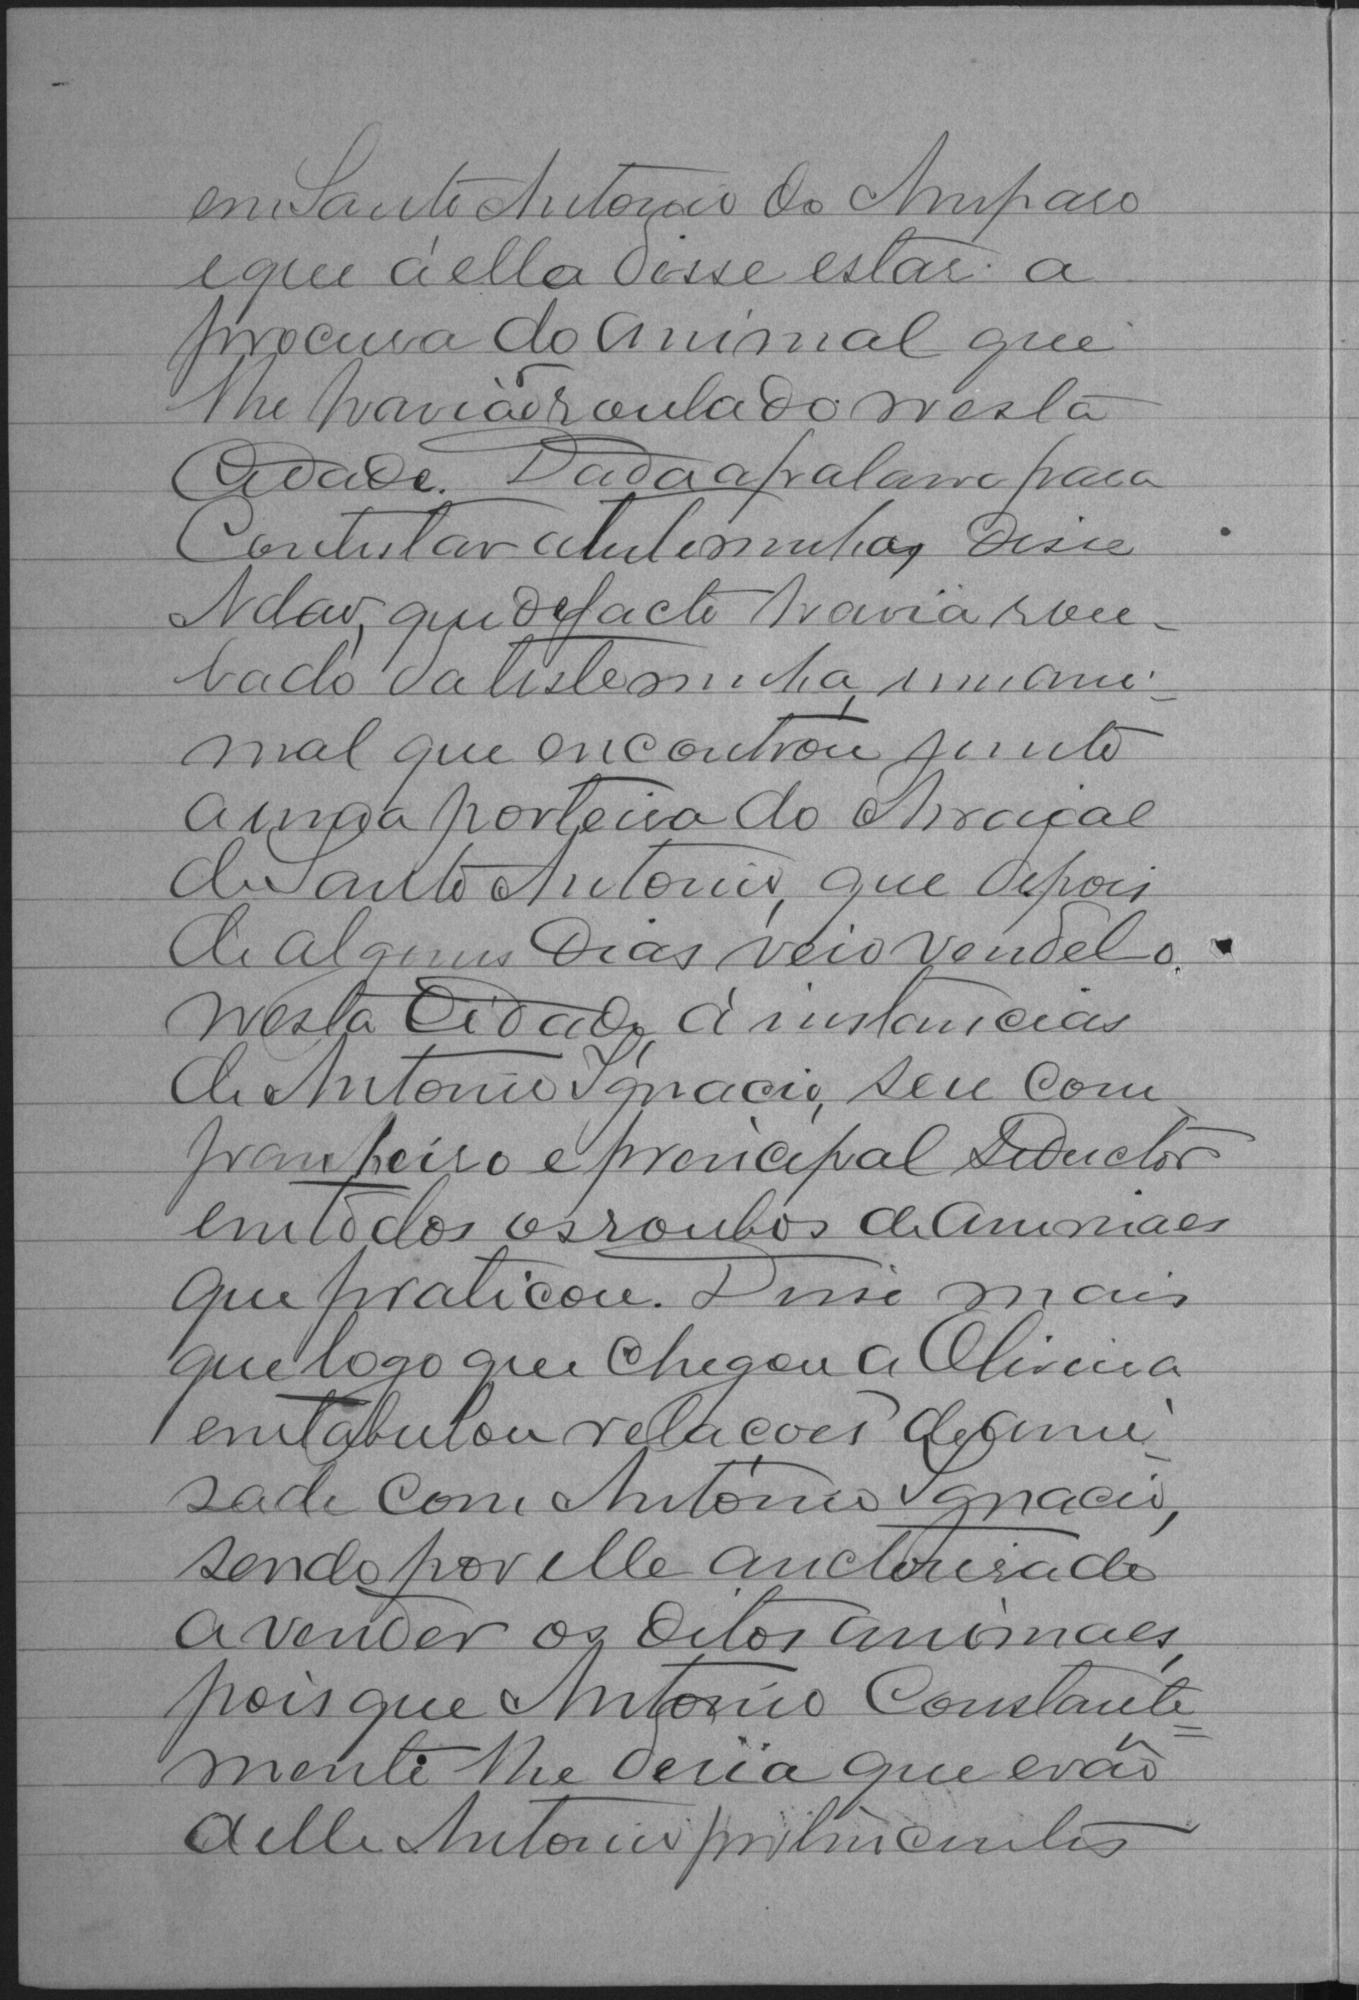 em Santo Antonio do Amparo
e que á ella disse estar a
procura do animal que
lhe havião roubado nesta
Cidade. Dada a palavra para
Contestar a testemunha, disse
que de facto havia rou-
bado da testemunha, um ani-
mal que encontrou junto
a uma porteira do Arraial
de Santo Antonio, que depois
de alguns dias veio vendel-o
nesta Cidade, á instancias
de Antonio Ignacio, seu com
panheiro e principal seductor
em todos os roubos de animaes
que praticou. Disse mais
que logo que chegou a Oliveira
entabulou relações de ami-
sade com Antonio Ignacio,
sendo por elle auctorisado
a vender os ditos animaes,
pois que Antonio Constante=
mente lhe desia que erão
delle Antonio pertencentes